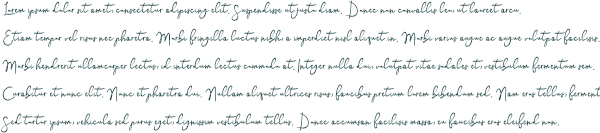 Lorem ipsum dolor sit amet, consectetur adipiscing elit. Suspendisse ut justo diam. Donec non convallis leo, ut laoreet arcu.
Etiam tempor vel risus nec pharetra. Morbi fringilla luctus nibh, a imperdiet nisl aliquet in. Morbi varius augue ac augue volutpat facilisis.
Morbi hendrerit ullamcorper lectus, id interdum lectus commodo at. Integer nulla dui, volutpat vitae sodales et, vestibulum fermentum sem.
Curabitur et nunc elit. Nunc et pharetra dui. Nullam aliquet ultrices risus, faucibus pretium lorem bibendum sed. Nam eros tellus, ferment
Sed tortor ipsum, vehicula sed purus eget, dignissim vestibulum tellus. Donec accumsan facilisis massa, eu faucibus eros eleifend non.